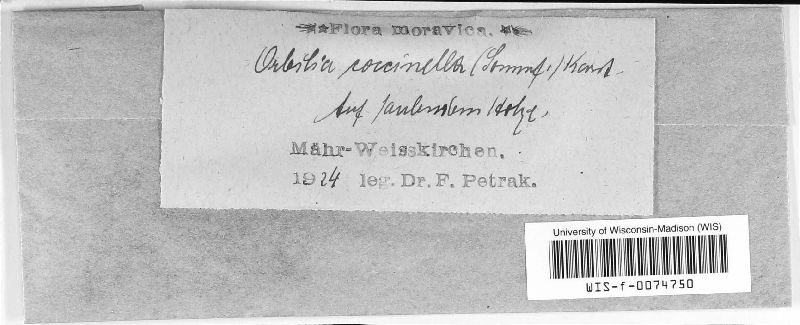 Flora moravica.
Orbilia coccinella (Sommf.) Karst.
Auf faulendem Holze.
Mähr-Weisskirchen.
1924 leg. Dr. F. Petrak.
University of Wisconsin-Madison (WIS)
WIS-f-0074750